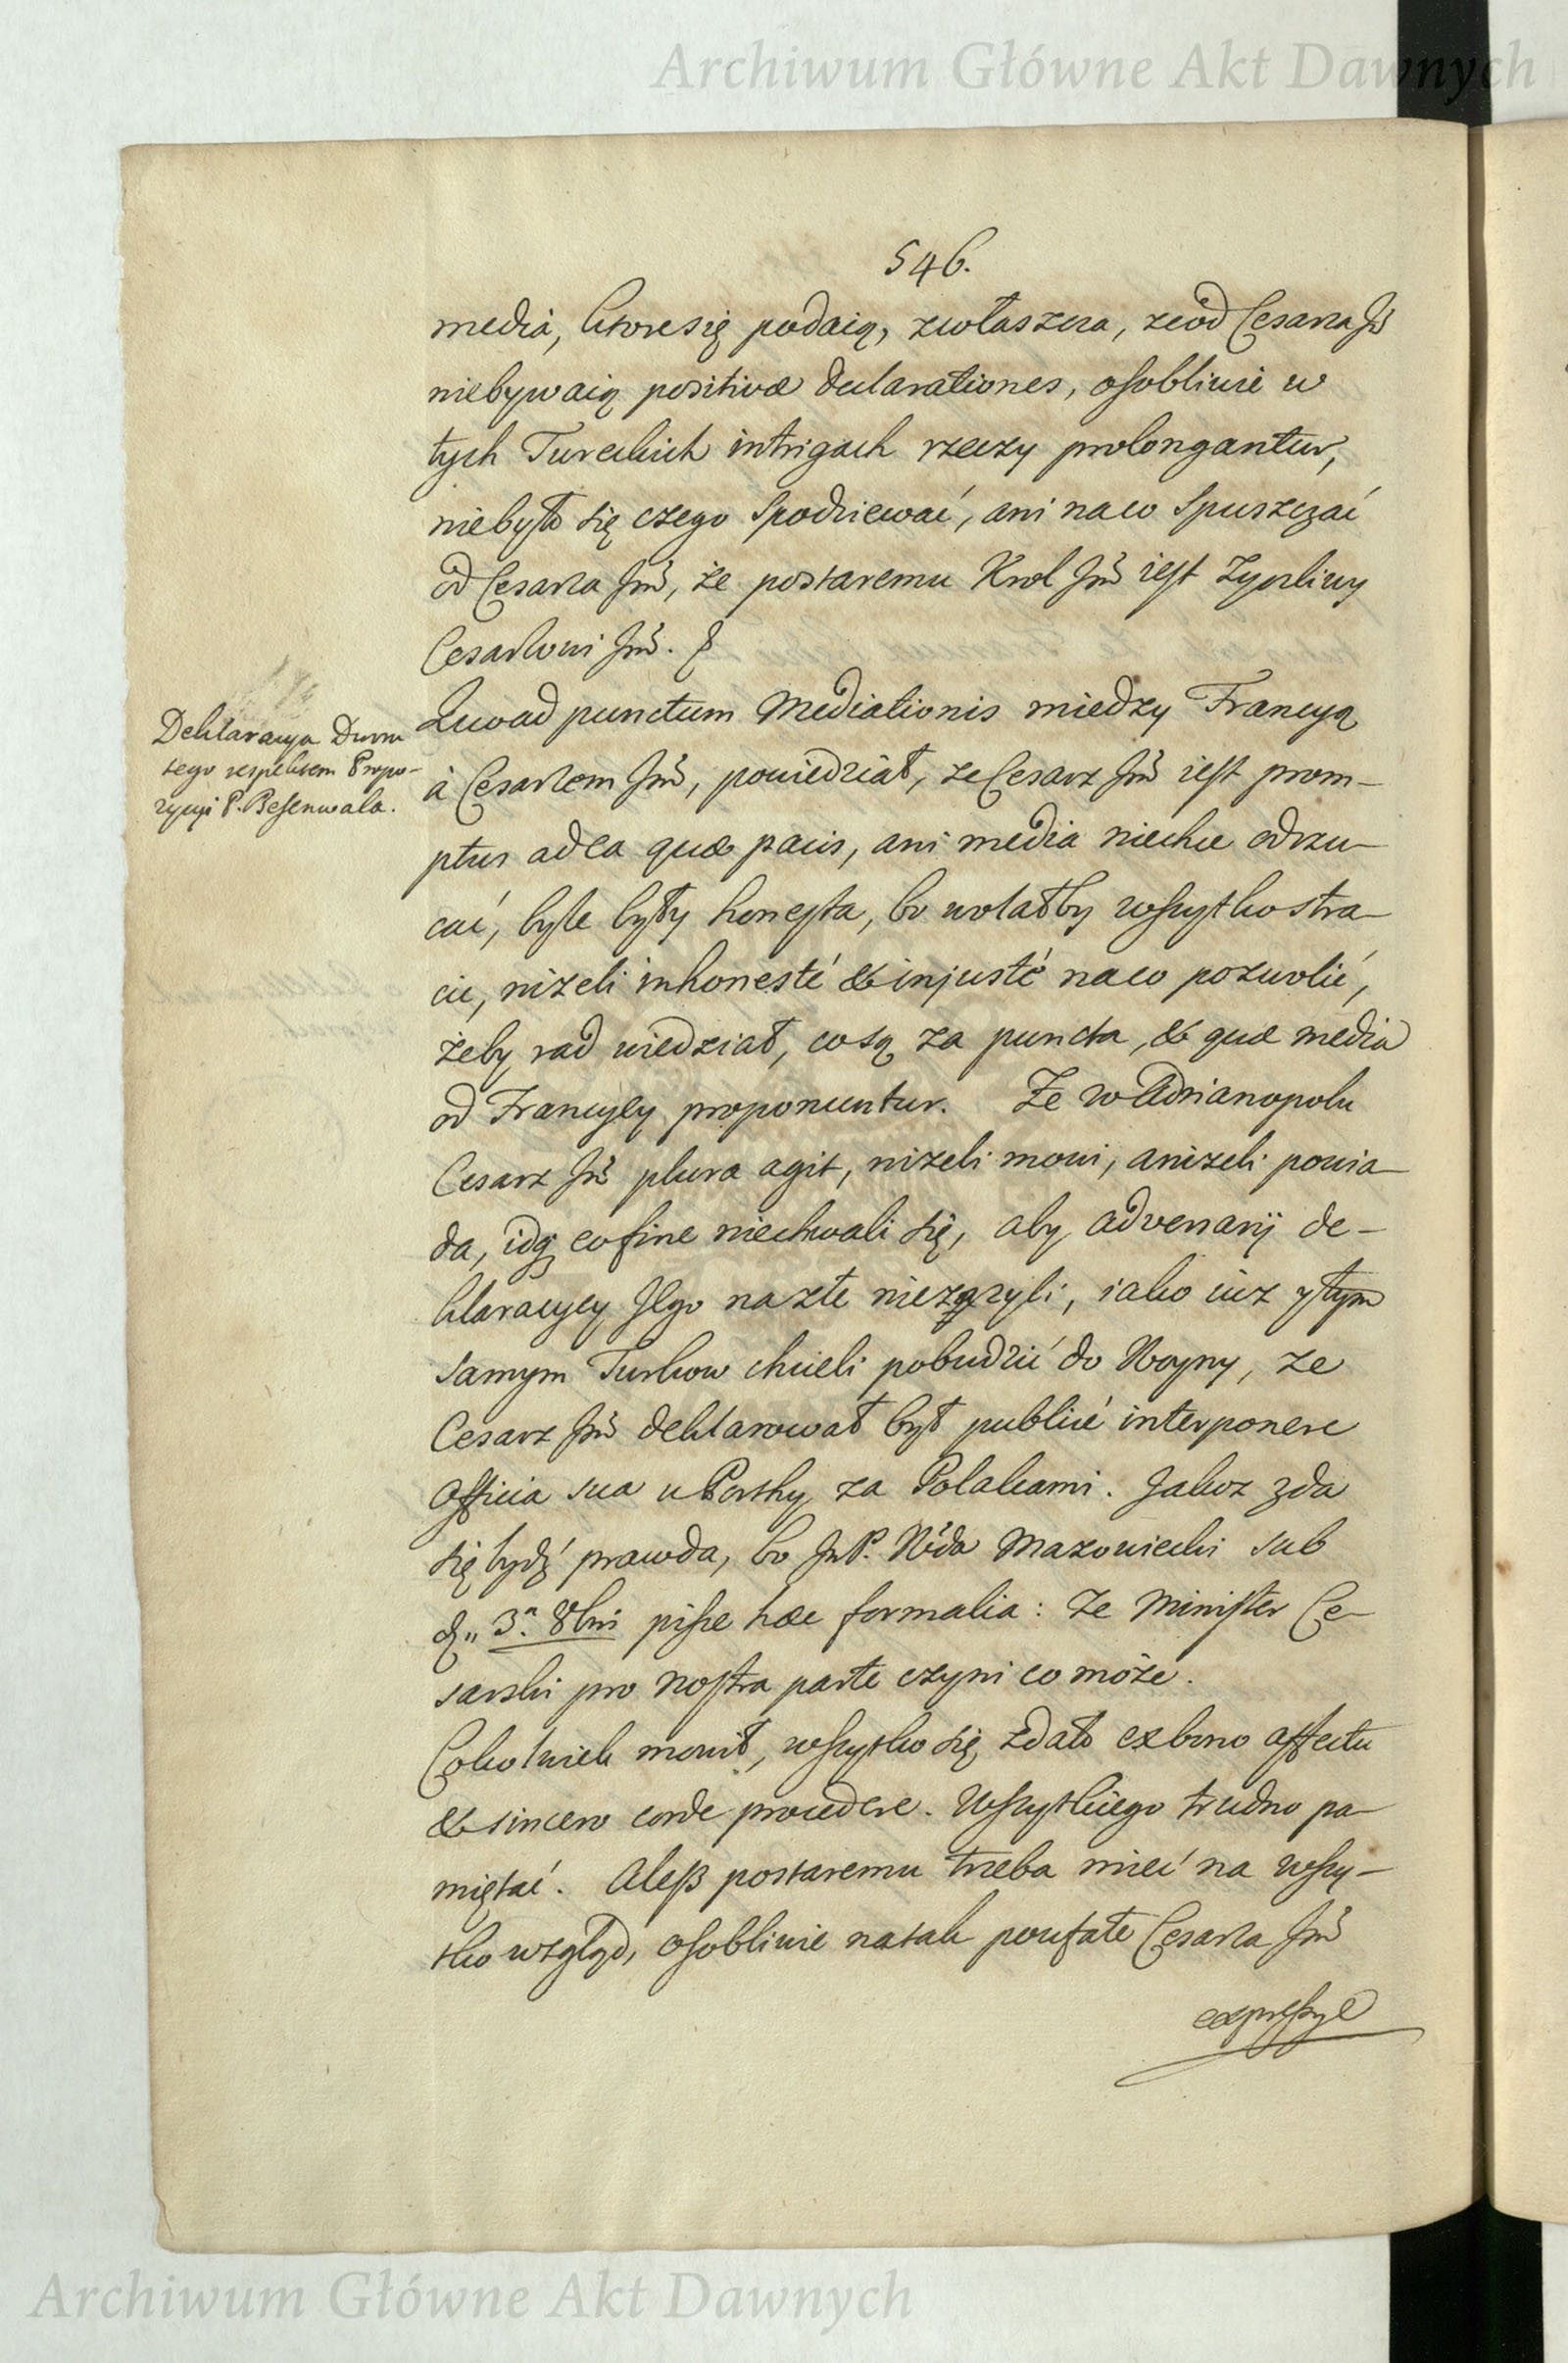 Archiwum Główne Akt Dawnych
546.
media, ktore się podaią, zwłaszcza, ze od Cesarza Jm̃
niebywaią positivæ declarationes, osobliwie w
tych Tureckich intrigach rzeczy prolongantur,
niebyło się czego spodziewać, ani naco spuszczać
od Cesarza Jm̃, że postaremu Krol Jm̃ iest zyczliwy
Cesarzowi Jm̃.
Quoad punctum Mediationis miedzy Francyą
Deklaracya Dwru
tego respektem Propo-
zycyi P. Besenwala.
à Cesarzem Jm̃, powiedział, ze Cesarz Jm̃ iest prom-
ptus ad ea quæ pacis, ani media niechce odrzu-
cać, byle były honesta, bo wolałby wszytko stra-
cić, niżeli inhonesté & injusté naco pozwolić,
żeby rad wiedział, co są za puncta, & quæ media
od Francyey proponuntur. Ze w Adrianopolu
Cesarz Jm̃ plura agit, niżeli mowi, aniżeli powia-
da, idq; eo fine niechwali się, aby adversarij de-
klaracyey Jego nazłe niezażyli, iako iuz y tym
samym Turkow chcieli pobudzić do Woyny, ze
Cesarz Jm̃ deklarował był publicé interponere
officia sua u Porthy za Polakami. Jakoz zda
się bydź prawda, bo JmP. Wda Mazowiecki sub
d. 3ª 8bris pisze hæc formalia: Ze Minister Ce-
sarski pro nostra parte czyni co może.
Cokolwiek mowił, wszytko się zdało ex bono affectu
& sincero corde procedere. Wszytkiego trudno pa-
miętać. Aleß postaremu trzeba mieć na wszy-
tko wzgląd, osobliwie natak poufałe Cesarza Jm̃
expressye
Archiwum Główne Akt Dawnych